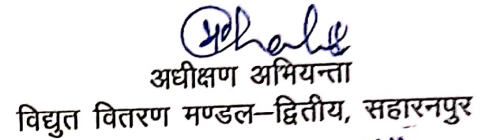 अधीक्षण अभियन्ता
विद्युत वितरण मण्डल–द्वितीय, सहारनपुर